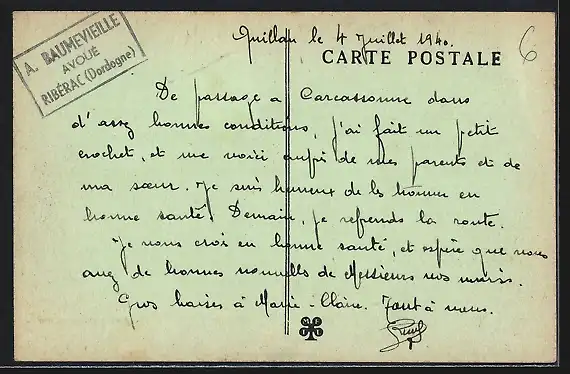 A. BAUMEVIEILLE
AVOUÉ
RIBÉRAC (Dordogne)
Quillan le 4 Juillet 1940.
6
CARTE POSTALE
De passage a Carcassonne dans
d'assez bonnes conditions, j'ai fait un petit
crochet, et me voici auprès de mes parents et de
ma sœur. Je suis heureux de les trouver en
bonne santé. Demain, je reprends la route.
Je vous crois en bonne santé, et espère que vous
avez de bonnes nouvelles de Messieurs vos maris.
Gros baises à Marie-Claire. Tout à vous.